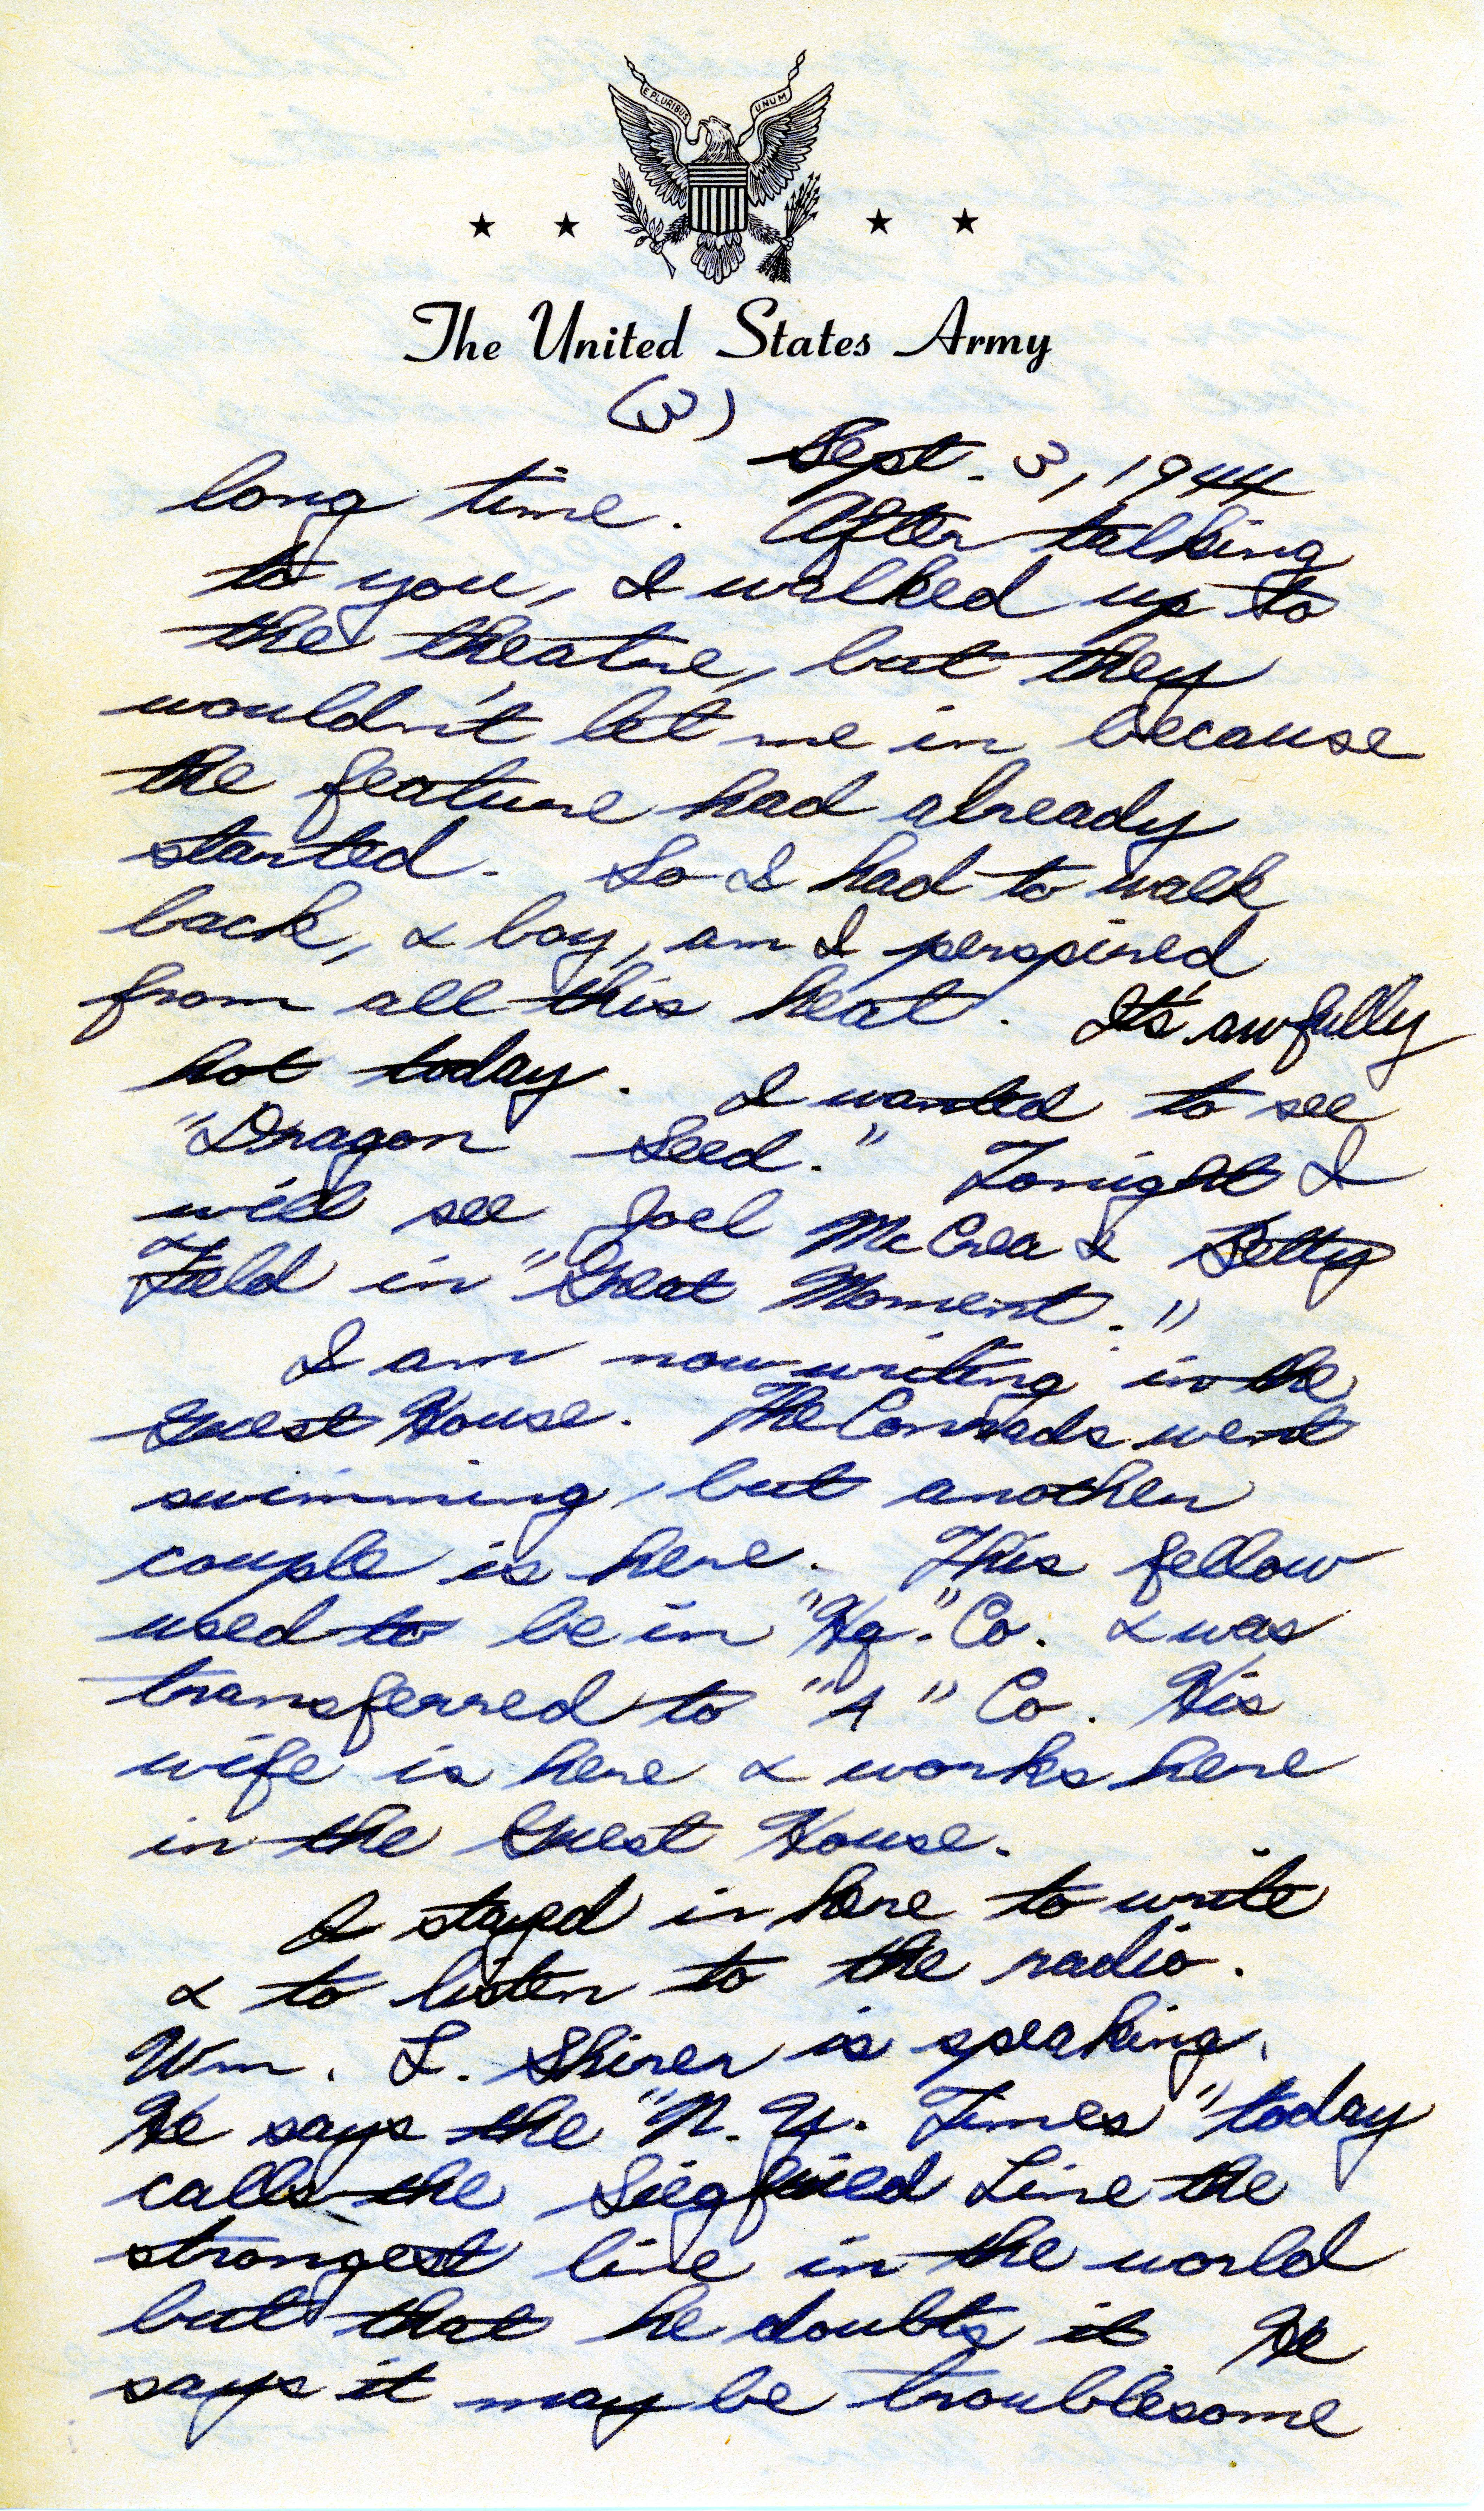 E PLURIBUS UNUM
The United States Army
(3)
Sept. 3, 1944
long time. After talking
to you, I walked up to
the theatre, but they
wouldn't let me in because
the feature had already
started. So I had to walk
back, & boy, am I perspired
from all this heat. It's awfully
hot today. I wanted to see
"Dragon Seed." Tonight I
will see Joel McCrea &  Betty
Field in "Great Moment."
I am now writing in the
Guest House. The Conrads went
swimming, but another
couple is here. This fellow
used to be in "Hq." Co. & was
transferred to "A" Co. His
wife is here & works here
in the Guest House.
I stayed in here to write
& to listen to the radio.
Wm. L. Shirer is speaking.
He says the "N. Y. Times" today
calls the Siegfried Line the
strongest line in the world
but that he doubts it. He
says it may be troublesome